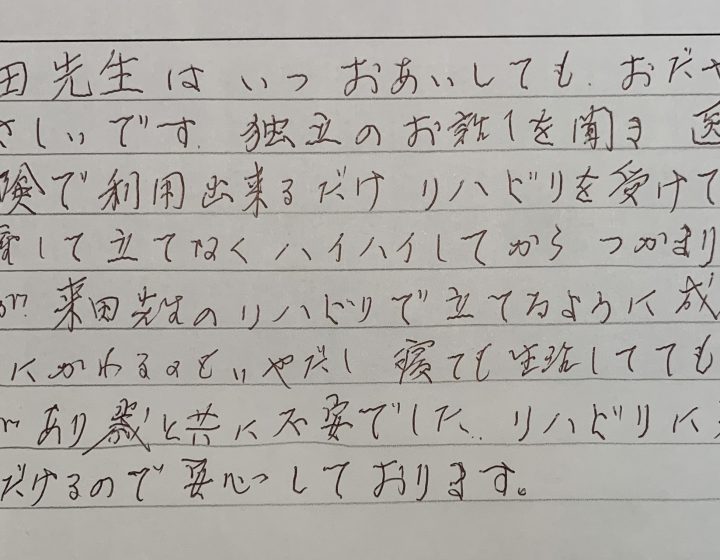 田先生は いつ おあいしても. おだや
さしいです. 独立のお話しを聞き 医
険で利用出来るだけ リハビリを受けて
して立てなく ハイハイしてから つかまり
が 来田先生のリハビリで立てるように成
にかわるのもいやだし 寝ても生活してても
があり 歳と共に不安でした. リハビリに
だけるので安心しております。